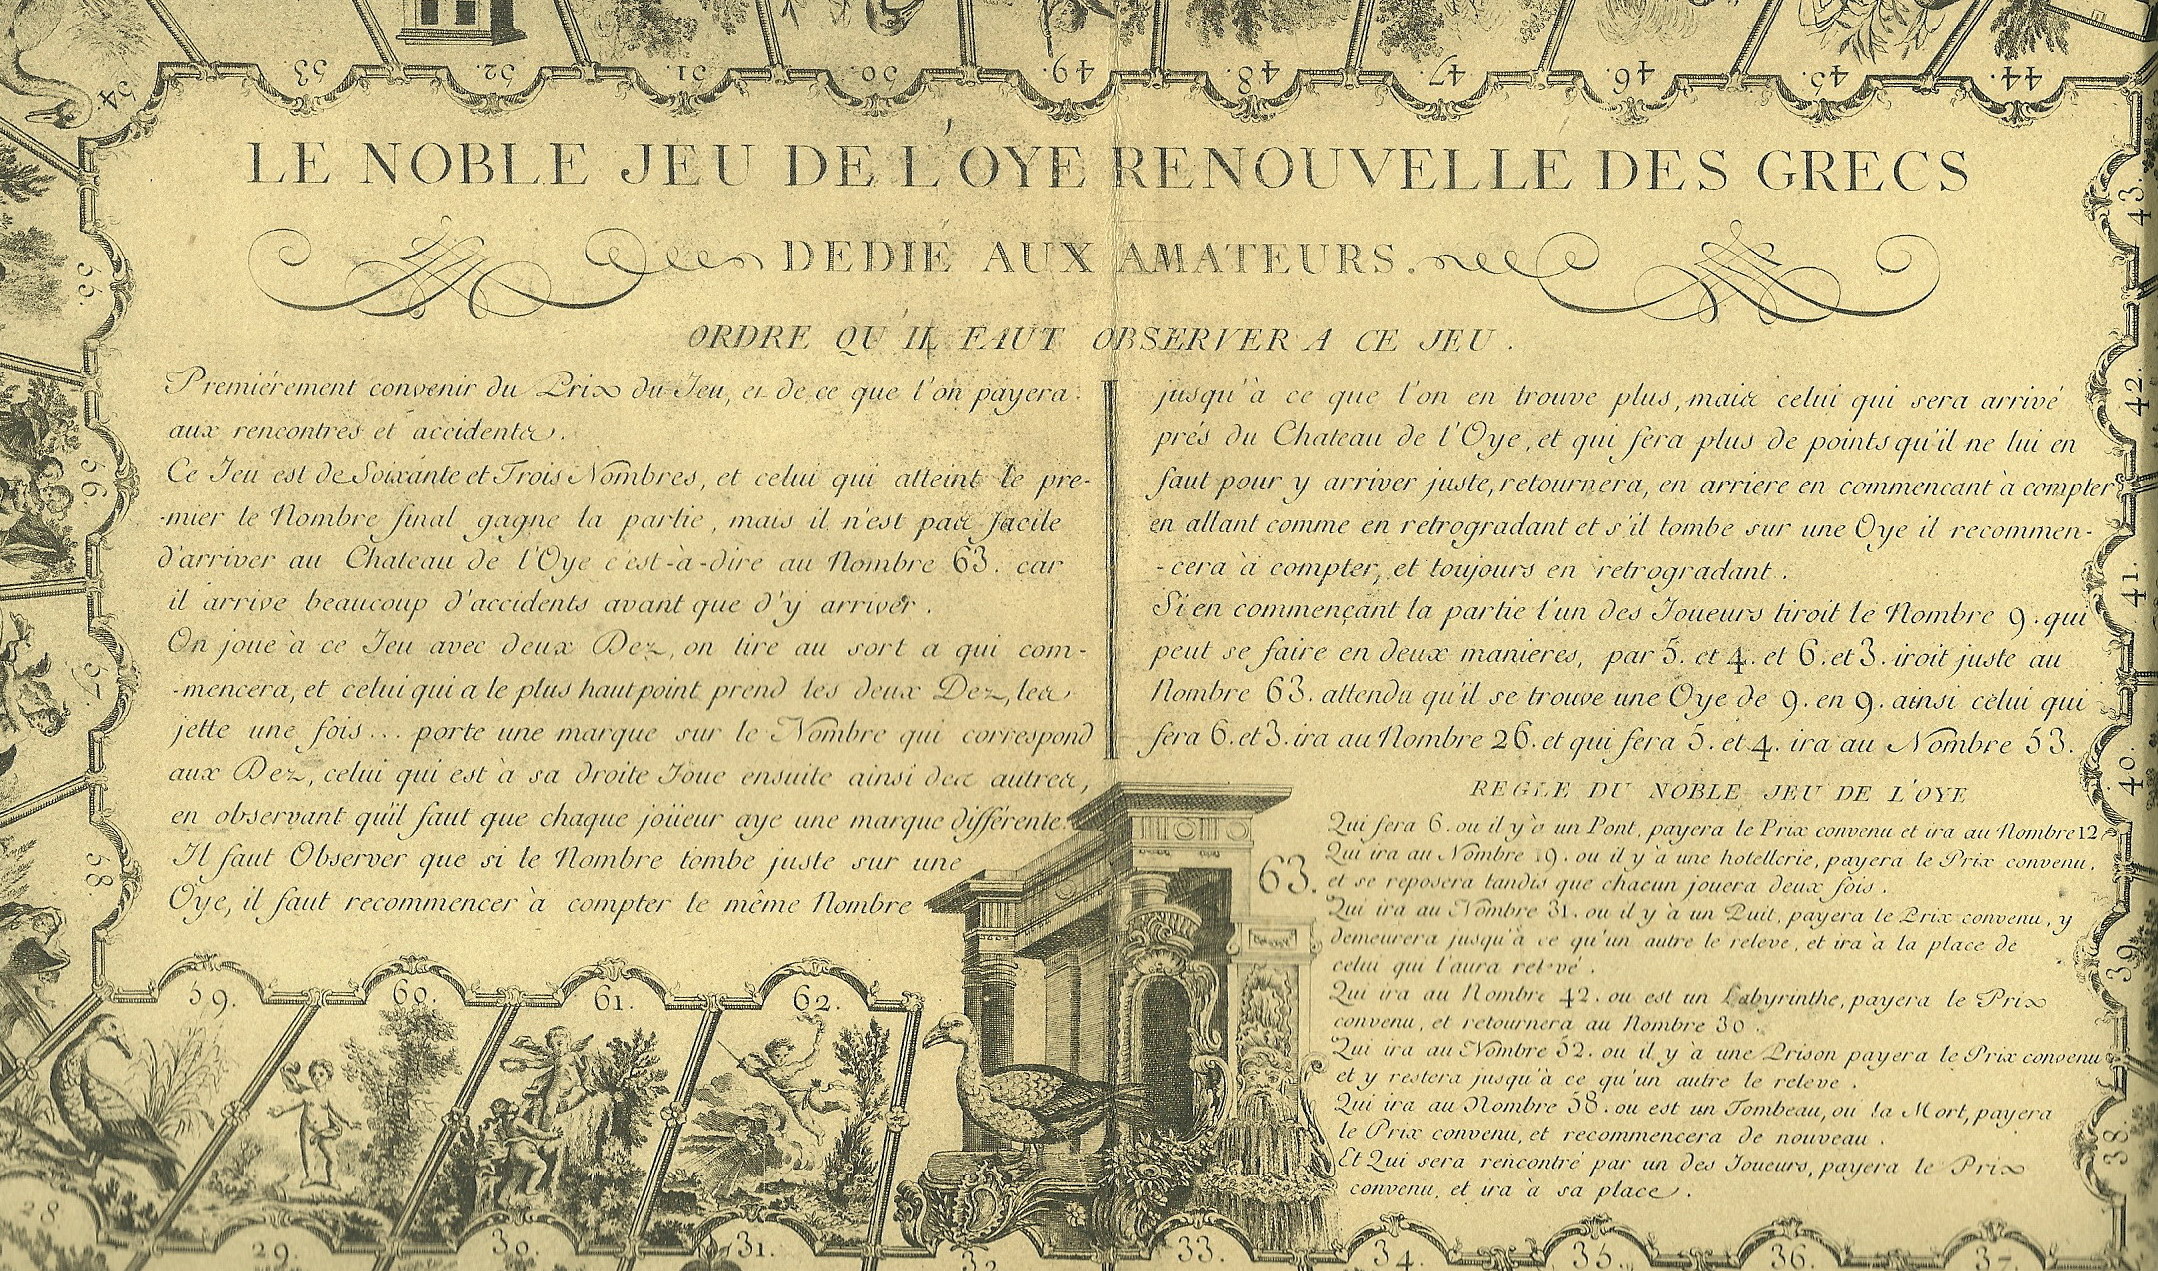 LE NOBLE JEU DE L'OYE RENOUVELLE DES GRECS
DEDIÉ AUX AMATEURS.
ORDRE QU'IL FAUT OBSERVER A CE JEU.
Premiérement convenir du Prix du Jeu, et de ce que l'on payera
aux rencontres et accidents.
Ce Jeu est de Soixante et Trois Nombres, et celui qui atteint le pre-
-mier le Nombre final gagne la partie, mais il n'est pas facile
d'arriver au Chateau de l'Oye c'est-à-dire au Nombre 63. car
il arrive beaucoup d'accidents avant que d'y arriver.
On joue à ce Jeu avec deux Dez, on tire au sort a qui com-
-mencera, et celui qui a le plus haut point prend les deux Dez, les
jette une fois... porte une marque sur le Nombre qui correspond
aux Dez, celui qui est à sa droite Joue ensuite ainsi des autres,
en observant qu'il faut que chaque joüeur aye une marque différente.
Il faut Observer que si le Nombre tombe juste sur une
Oye, il faut recommencer à compter le même Nombre
jusqu'à ce que l'on en trouve plus, mais celui qui sera arrivé
prés du Chateau de l'Oye, et qui fera plus de points qu'il ne lui en
faut pour y arriver juste, retournera, en arriere en commencant à compter
en allant comme en retrogradant et s'il tombe sur une Oye il recommen-
-cera à compter, et toujours en retrogradant.
Si en commençant la partie l'un des Joueurs tiroit le Nombre 9. qui
peut se faire en deux manieres, par 5. et 4. et 6. et 3. iroit juste au
Nombre 63. attendu qu'il se trouve une Oye de 9. en 9. ainsi celui qui
fera 6. et 3. ira au Nombre 26. et qui fera 5. et 4. ira au Nombre 53.
REGLE DU NOBLE JEU DE L'OYE
Qui fera 6. ou il y à un Pont, payera le Prix convenu et ira au Nombre 12
Qui ira au Nombre 19. ou il y à une hotellerie, payera le Prix convenu,
et se reposera tandis que chacun jouera deux fois.
Qui ira au Nombre 31. ou il y à un Puit, payera le Prix convenu, y
demeurera jusqu'à ce qu'un autre le releve, et ira à la place de
celui qui l'aura relevé.
Qui ira au Nombre 42. ou est un Labyrinthe, payera le Prix
convenu, et retournera au Nombre 30.
Qui ira au Nombre 52. ou il y à une Prison payera le Prix convenu
et y restera jusqu'à ce qu'un autre le releve.
Qui ira au Nombre 58. ou est un Tombeau, ou la Mort, payera
le Prix convenu, et recommencera de nouveau.
Et Qui sera rencontré par un des Joueurs, payera le Prix
convenu, et ira à sa place.
63.
28
29.
30.
31.
32
33.
34.
35.
36.
37.
38.
39.
40.
41.
42.
43.
44.
45.
46.
47.
48.
49.
50.
51.
52.
53.
54
55.
56.
57.
58.
59.
60.
61.
62.